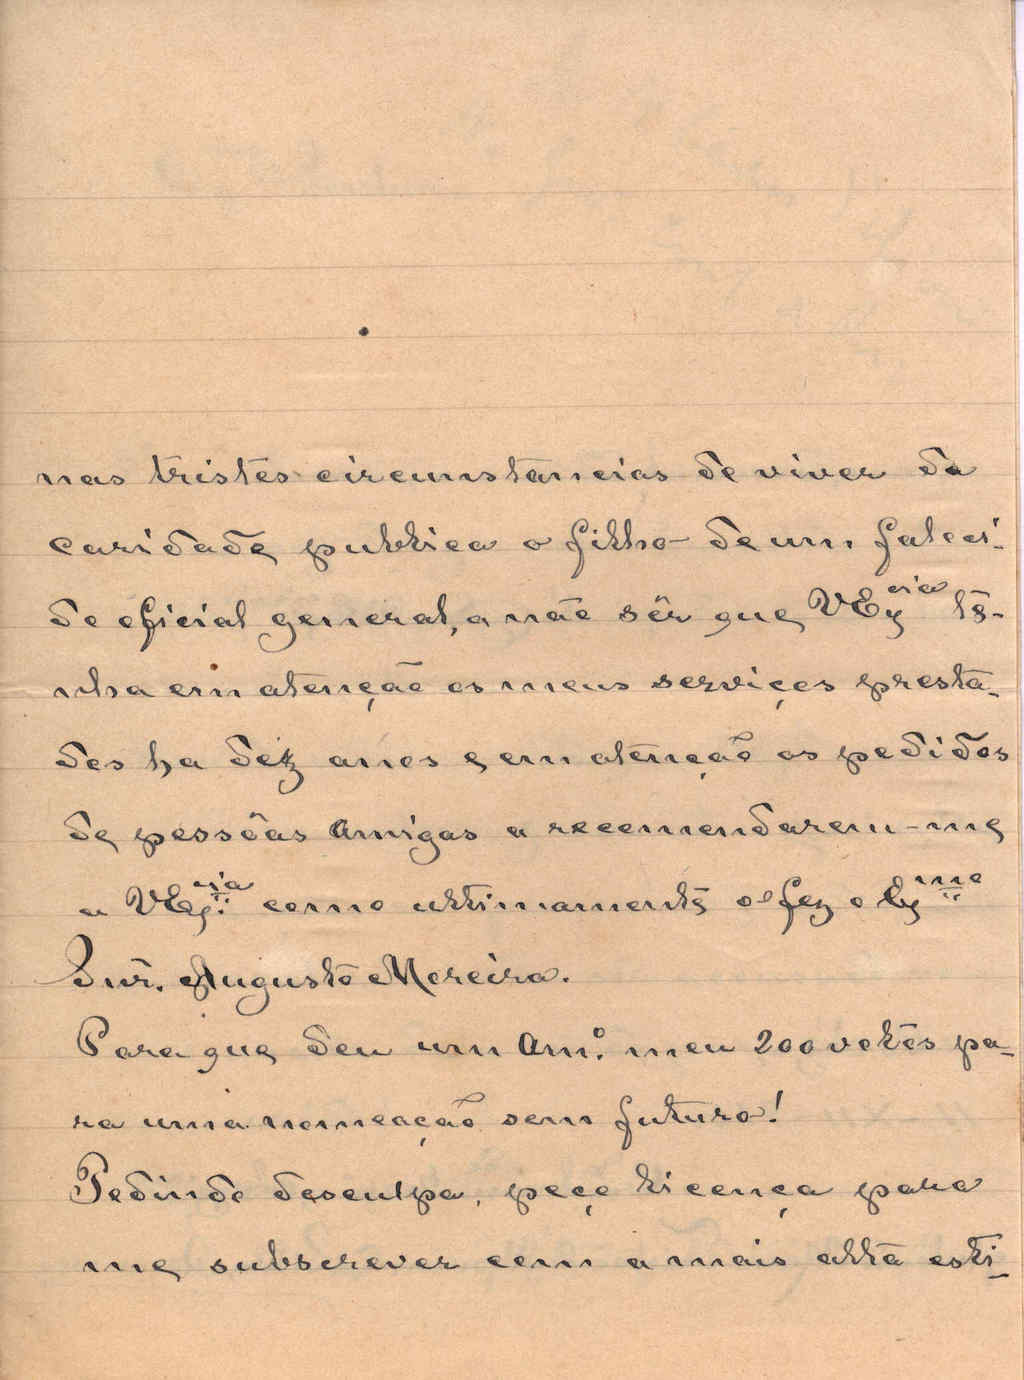 nas tristes circumstancias de viver da
caridade publica o filho de um faleci-
do oficial general, a não sêr que VEx.cia te-
nha em atenção os meus serviços presta-
dos ha dez anos e em atenção os pedidos
de pessôas amigas a recomendarem-me
a VEx.cia como ultimamente o fez o Ex.mo
Snr. Augusto Moreira.
Para que deu um Am.º meu 200 votos pa-
ra uma nomeação sem futuro!
Pedindo desculpa, peço licença para
me subscrever com a mais alta esti-